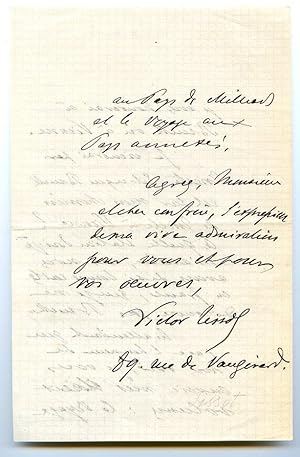 au Pays de Milliards
et le Voyage aux
Pays annexés,
Agréez, Monsieur
et cher confrère, l'expression
de ma vive admiration
pour vous et pour
vos oeuvres,
Victor Tissot
89, rue de Vaugirard.